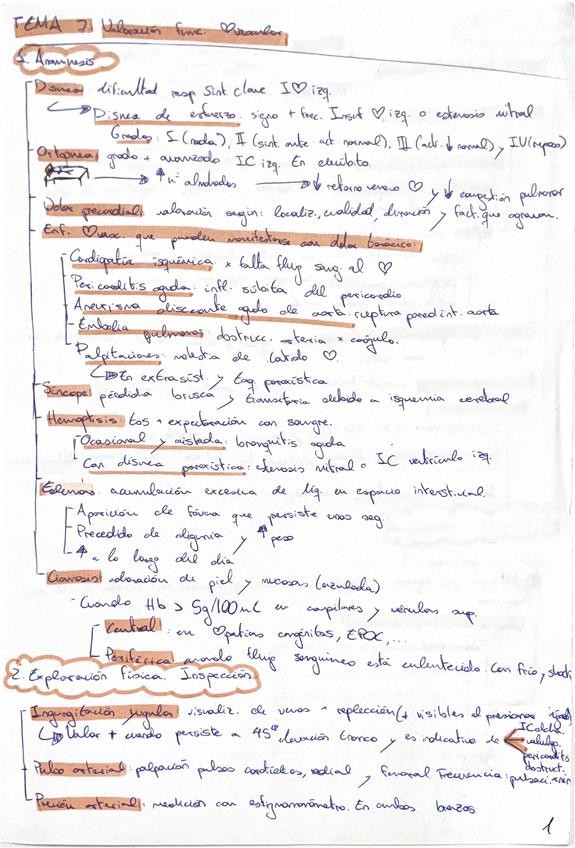 TEMA 7. Valoración func. ♡vascular
1. Anamnesis
Disnea: dificultad resp. Sínt. clave I♡ izq.
Disnea de esfuerzo: signo + frec. Insuf ♡ izq. o estenosis mitral
Grados: I (nada), II (sínt. ante act normal), III (act. ↓ normal) y IV (reposo)
Ortopnea: grado + avanzado IC izq. En decúbito.
↑ nº almohadas → ↓ retorno venoso ♡ y ↓ congestión pulmonar
Dolor precordial: valoración según: localiz., cualidad, duración y fact. que agravan.
Enf. ♡vasc. que pueden manifestarse con dolor torácico:
Cardiopatía isquémica: x falta flujo sang. al ♡
Pericarditis aguda: infl. súbita del pericardio
Aneurisma disecante agudo de aorta: ruptura pared int. aorta
Embolia pulmonar: obstrucc. arteria x coágulo.
Palpitaciones: molestia de latido ♡.
En extrasíst. y taq. paroxística
Síncope: pérdida brusca y transitoria debido a isquemia cerebral
Hemoptisis: tos + expectoración con sangre.
Ocasional y aislada: bronquitis aguda
Con disnea paroxística: estenosis mitral o IC ventrículo izq.
Edemas: acumulación excesiva de líq. en espacio intersticial.
Aparición de fóvea que persiste unos seg
Precedido de oliguria y ↑ peso
↑ a lo largo del día
Cianosis: coloración de piel y mucosas (azulada)
- Cuando Hb > 5g/100mL en capilares y vénulas sup.
Central: en ♡patías congénitas, EPOC,...
Periférica: cuando flujo sanguíneo está enlentecido. Con frío y shock
2. Exploración física. Inspección
Ingurgitación yugular: visualiz. de venas x replección (+ visibles al presionar
Valor + cuando persiste a 45º elevación tronco y es indicativo de
IC dcha.
valvulop.
pericarditis
obstruct.
Pulso arterial: palpación pulsos carotídeos, radial y femoral. Frecuencia: pulsac. x min
Presión arterial: medición con esfigmomanómetro. En ambos brazos
1